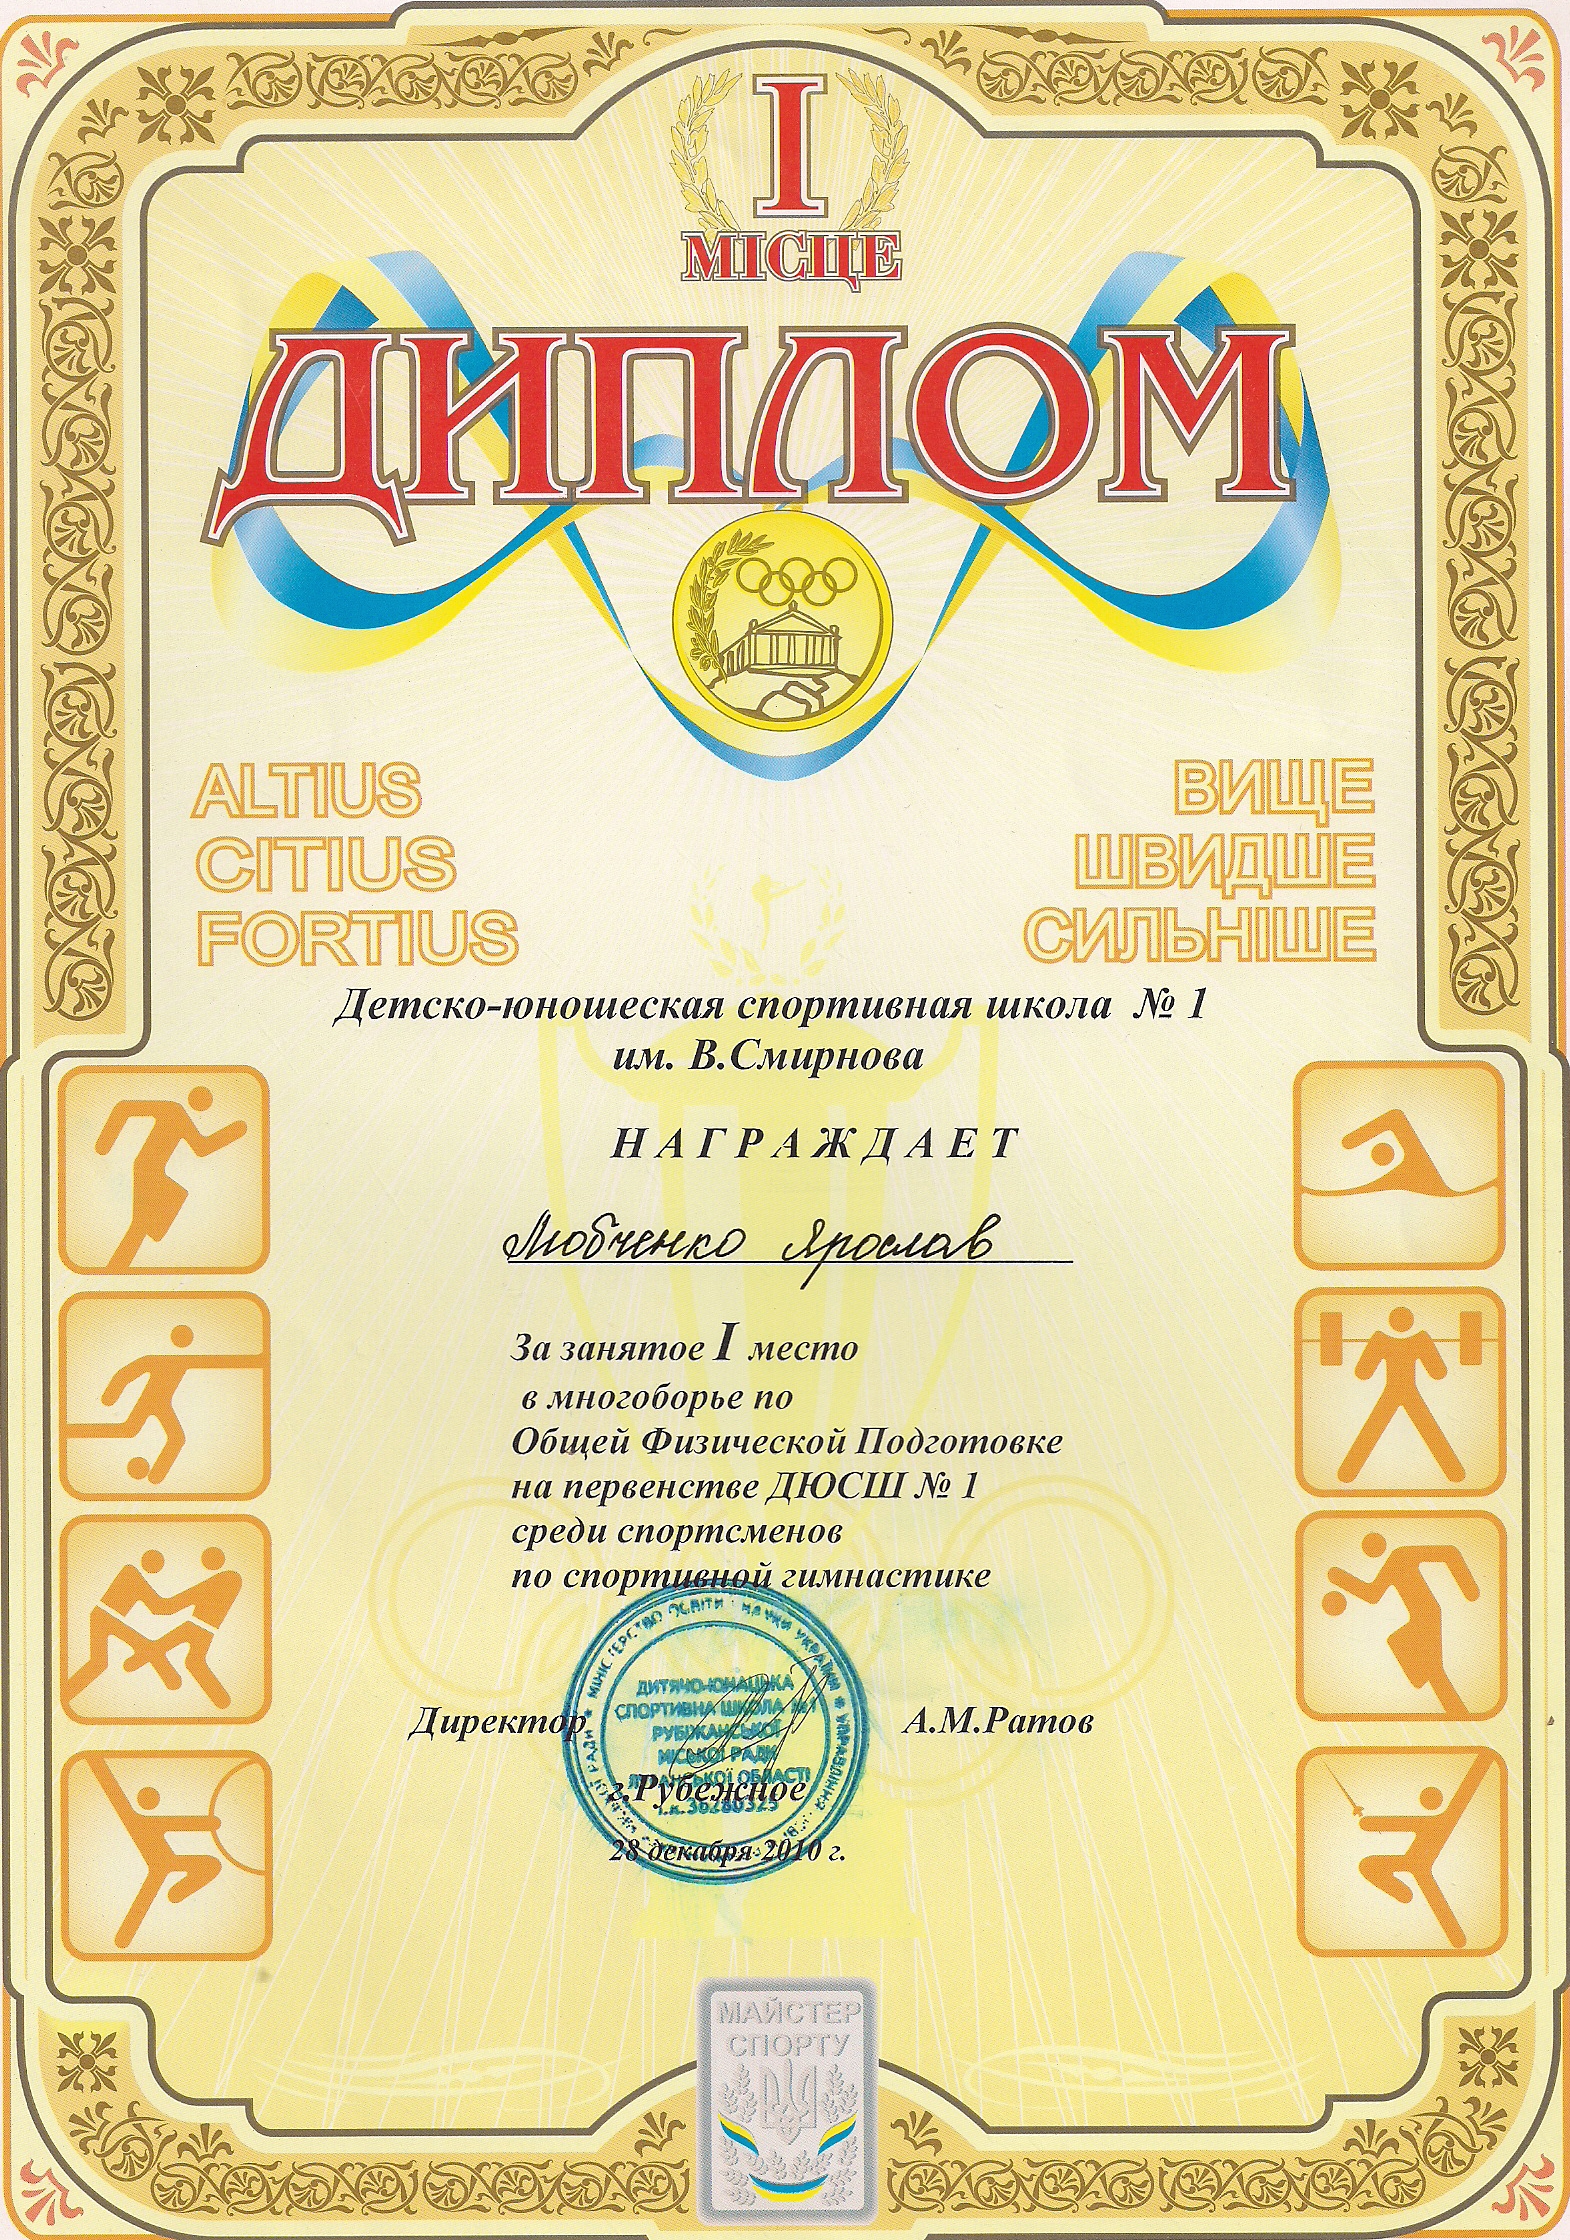 I
МІСЦЕ
ДИПЛОМ
ALTIUS
CITIUS
FORTIUS
ВИЩЕ
ШВИДШЕ
СИЛЬНІШЕ
Детско-юношеская спортивная школа № 1
им. В.Смирнова
НАГРАЖДАЕТ
Любченко Ярослав
За занятое I место
в многоборье по
Общей Физической Подготовке
на первенстве ДЮСШ № 1
среди спортсменов
по спортивной гимнастике
МІНІСТЕРСТВО ОСВІТИ І НАУКИ УКРАЇНИ * УПРАВЛІННЯ
РАДИ
ДИТЯЧО-ЮНАЦЬКА
СПОРТИВНА ШКОЛА №1
РУБІЖАНСЬКОЇ
МІСЬКОЇ РАДИ
ЛУГАНСЬКОЇ ОБЛАСТІ
і.к. 36280325
Директор А.М.Ратов
г.Рубежное
28 декабря 2010 г.
МАЙСТЕР
СПОРТУ